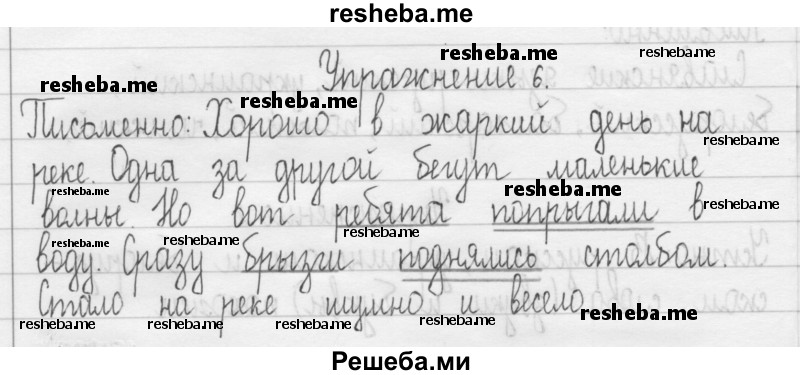 resheba.me
Упражнение 6.
resheba.me
resheba.me
resheba.me
resheba.me
Письменно: Хорошо в жаркий день на
resheba.me
реке. Одна за другой бегут маленькие
resheba.me
resheba.me
resheba.me
волны. Но вот ребята попрыгали в
resheba.me
resheba.me
resheba.me
воду. Сразу брызги поднялись столбом.
resheba.me
resheba.me
Стало на реке шумно и весело
resheba.me
resheba.me
resheba.me
resheba.me
resheba.me
resheba.me
Решеба.ми